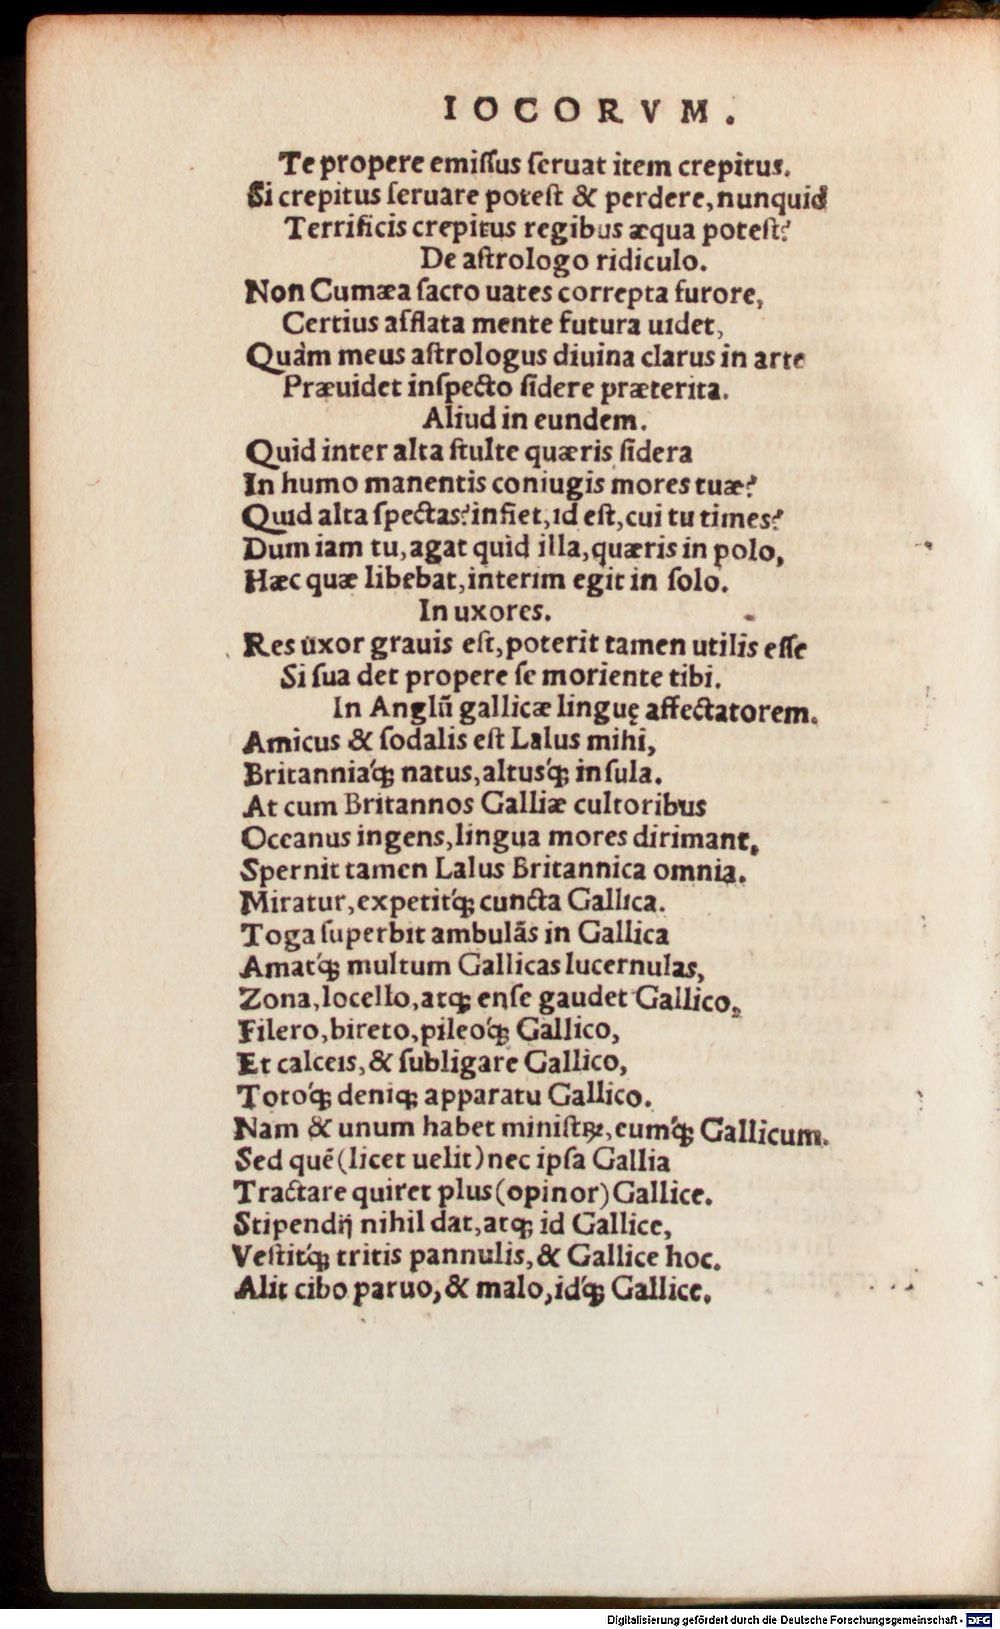 IOCORVM.
Te propere emiſſus ſeruat item crepitus.
Si crepitus ſeruare poteſt & perdere, nunquid
Terrificis crepitus regibus æqua poteſt?
De aſtrologo ridiculo.
Non Cumæa ſacro uates correpta furore,
Certius afflata mente futura uidet,
Quàm meus aſtrologus diuina clarus in arte
Præuidet inſpecto ſidere præterita.
Aliud in eundem.
Quid inter alta ſtulte quæris ſidera
In humo manentis coniugis mores tuæ?
Quid alta ſpectas? infiet, id eſt, cui tu times?
Dum iam tu, agat quid illa, quæris in polo,
Hæc quæ libebat, interim egit in ſolo.
In uxores.
Res uxor grauis eſt, poterit tamen utilis eſſe
Si ſua det propere ſe moriente tibi.
In Anglū gallicæ linguę affectatorem.
Amicus & ſodalis eſt Lalus mihi,
Britanniaq́ꝫ natus, altusq́ꝫ inſula.
At cum Britannos Galliæ cultoribus
Oceanus ingens, lingua mores dirimant,
Spernit tamen Lalus Britannica omnia.
Miratur, expetitq́ꝫ cuncta Gallica.
Toga ſuperbit ambulās in Gallica
Amatq́ꝫ multum Gallicas lucernulas,
Zona, locello, atqꝫ enſe gaudet Gallico,
Filero, bireto, pileoq́ꝫ Gallico,
Et calceis, & ſubligare Gallico,
Totoq́ꝫ deniqꝫ apparatu Gallico.
Nam & unum habet miniſtꝝ, eumq́ꝫ Gallicum.
Sed quē (licet uelit) nec ipſa Gallia
Tractare quiret plus (opinor) Gallice.
Stipendij nihil dat, atqꝫ id Gallice,
Veſtitq́ꝫ tritis pannulis, & Gallice hoc.
Alit cibo paruo, & malo, idq́ꝫ Gallice.
Digitalisierung gefördert durch die Deutsche Forschungsgemeinschaft - DFG